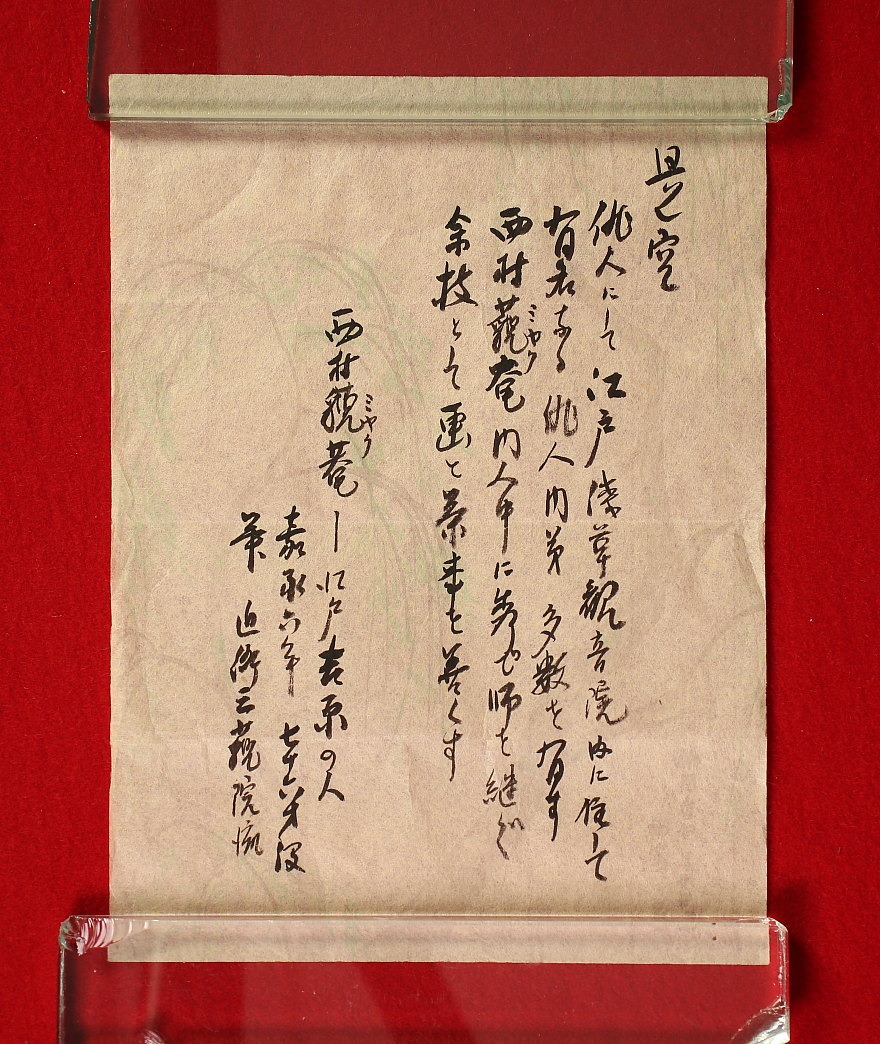 是空
俳人にして江戸浅草観音院内に住して
有名なる俳人門弟多数を有す
西村藐庵門人中に秀で師を継ぐ
ミヤク
余技として画と茶事を善くす
西村藐庵ー江戸吉原の人
ミヤク
嘉永六年 七十八才没
筆 近衛三藐院流